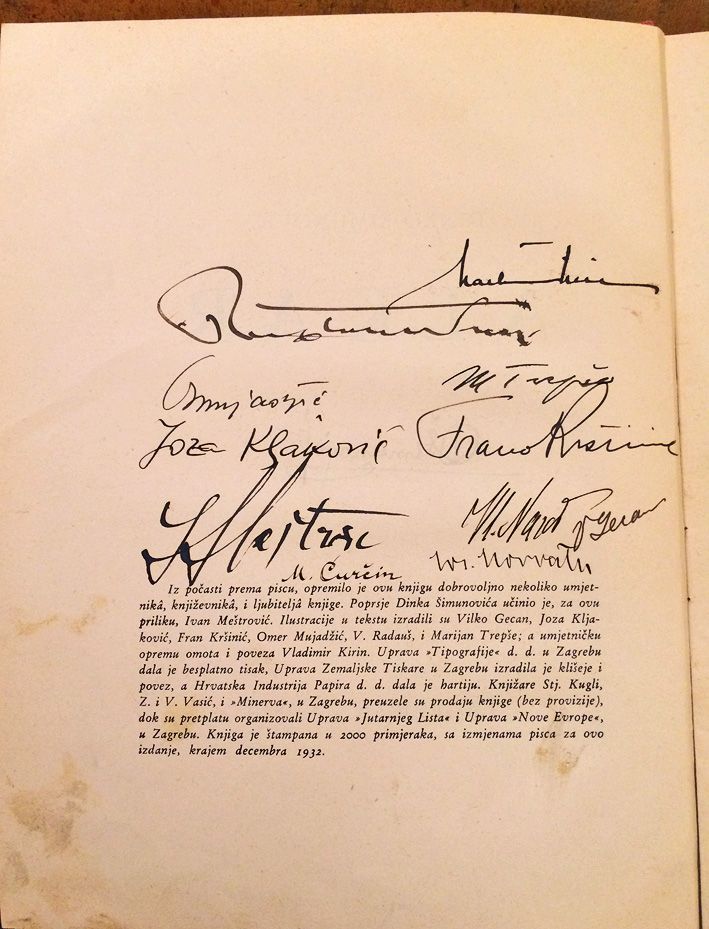 M Trepše
Joza Kljaković Frano Kršinić
I Meštrović
V. Gecan
M. Ćurčin
Iz počasti prema piscu, opremilo je ovu knjigu dobrovoljno nekoliko umjet-
nikâ, književnikâ, i ljubiteljâ knjige. Poprsje Dinka Šimunovića učinio je, za ovu
priliku, Ivan Meštrović. Ilustracije u tekstu izradili su Vilko Gecan, Joza Klja-
ković, Fran Kršinić, Omer Mujadžić, V. Radauš, i Marijan Trepše; a umjetničku
opremu omota i poveza Vladimir Kirin. Uprava »Tipografije« d. d. u Zagrebu
dala je besplatno tisak, Uprava Zemaljske Tiskare u Zagrebu izradila je klišeje i
povez, a Hrvatska Industrija Papira d. d. dala je hartiju. Knjižare Stj. Kugli,
Z. i V. Vasić, i »Minerva«, u Zagrebu, preuzele su prodaju knjige (bez provizije),
dok su pretplatu organizovali Uprava »Jutarnjeg Lista« i Uprava »Nove Evrope«,
u Zagrebu. Knjiga je štampana u 2000 primjeraka, sa izmjenama pisca za ovo
izdanje, krajem decembra 1932.